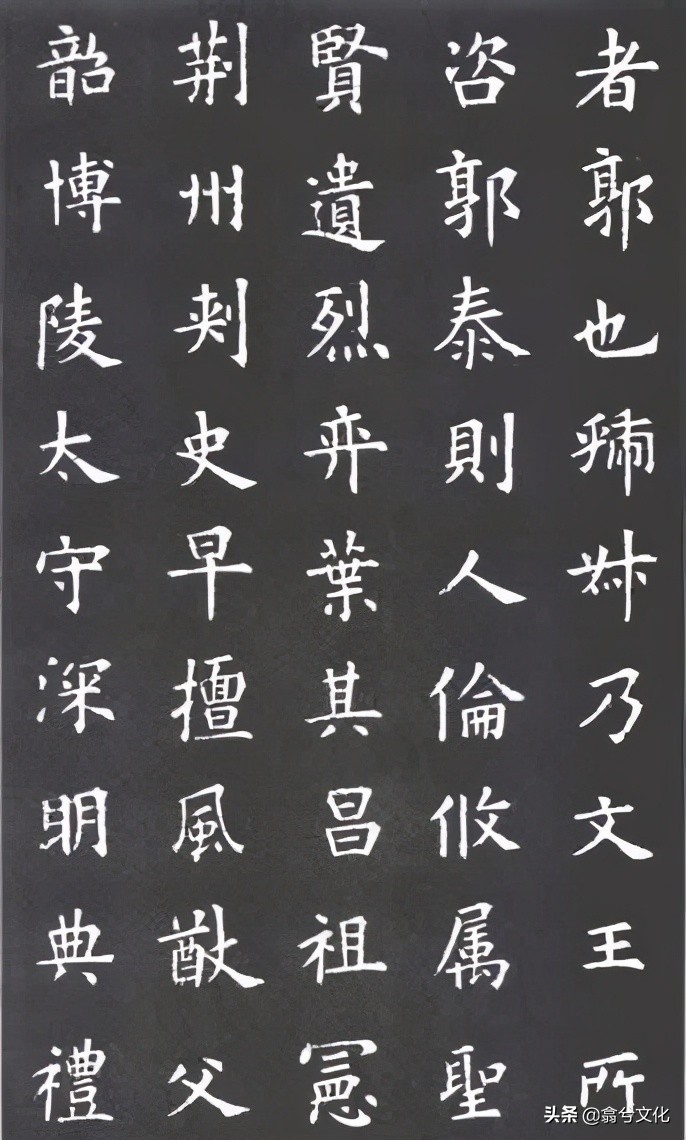 者郭也虢叔乃文王所
咨郭泰則人倫攸属聖
賢遺烈弈葉其昌祖憲
荆州刾史早擅風猷父
韶博陵太守深明典禮
头条 @翕兮文化